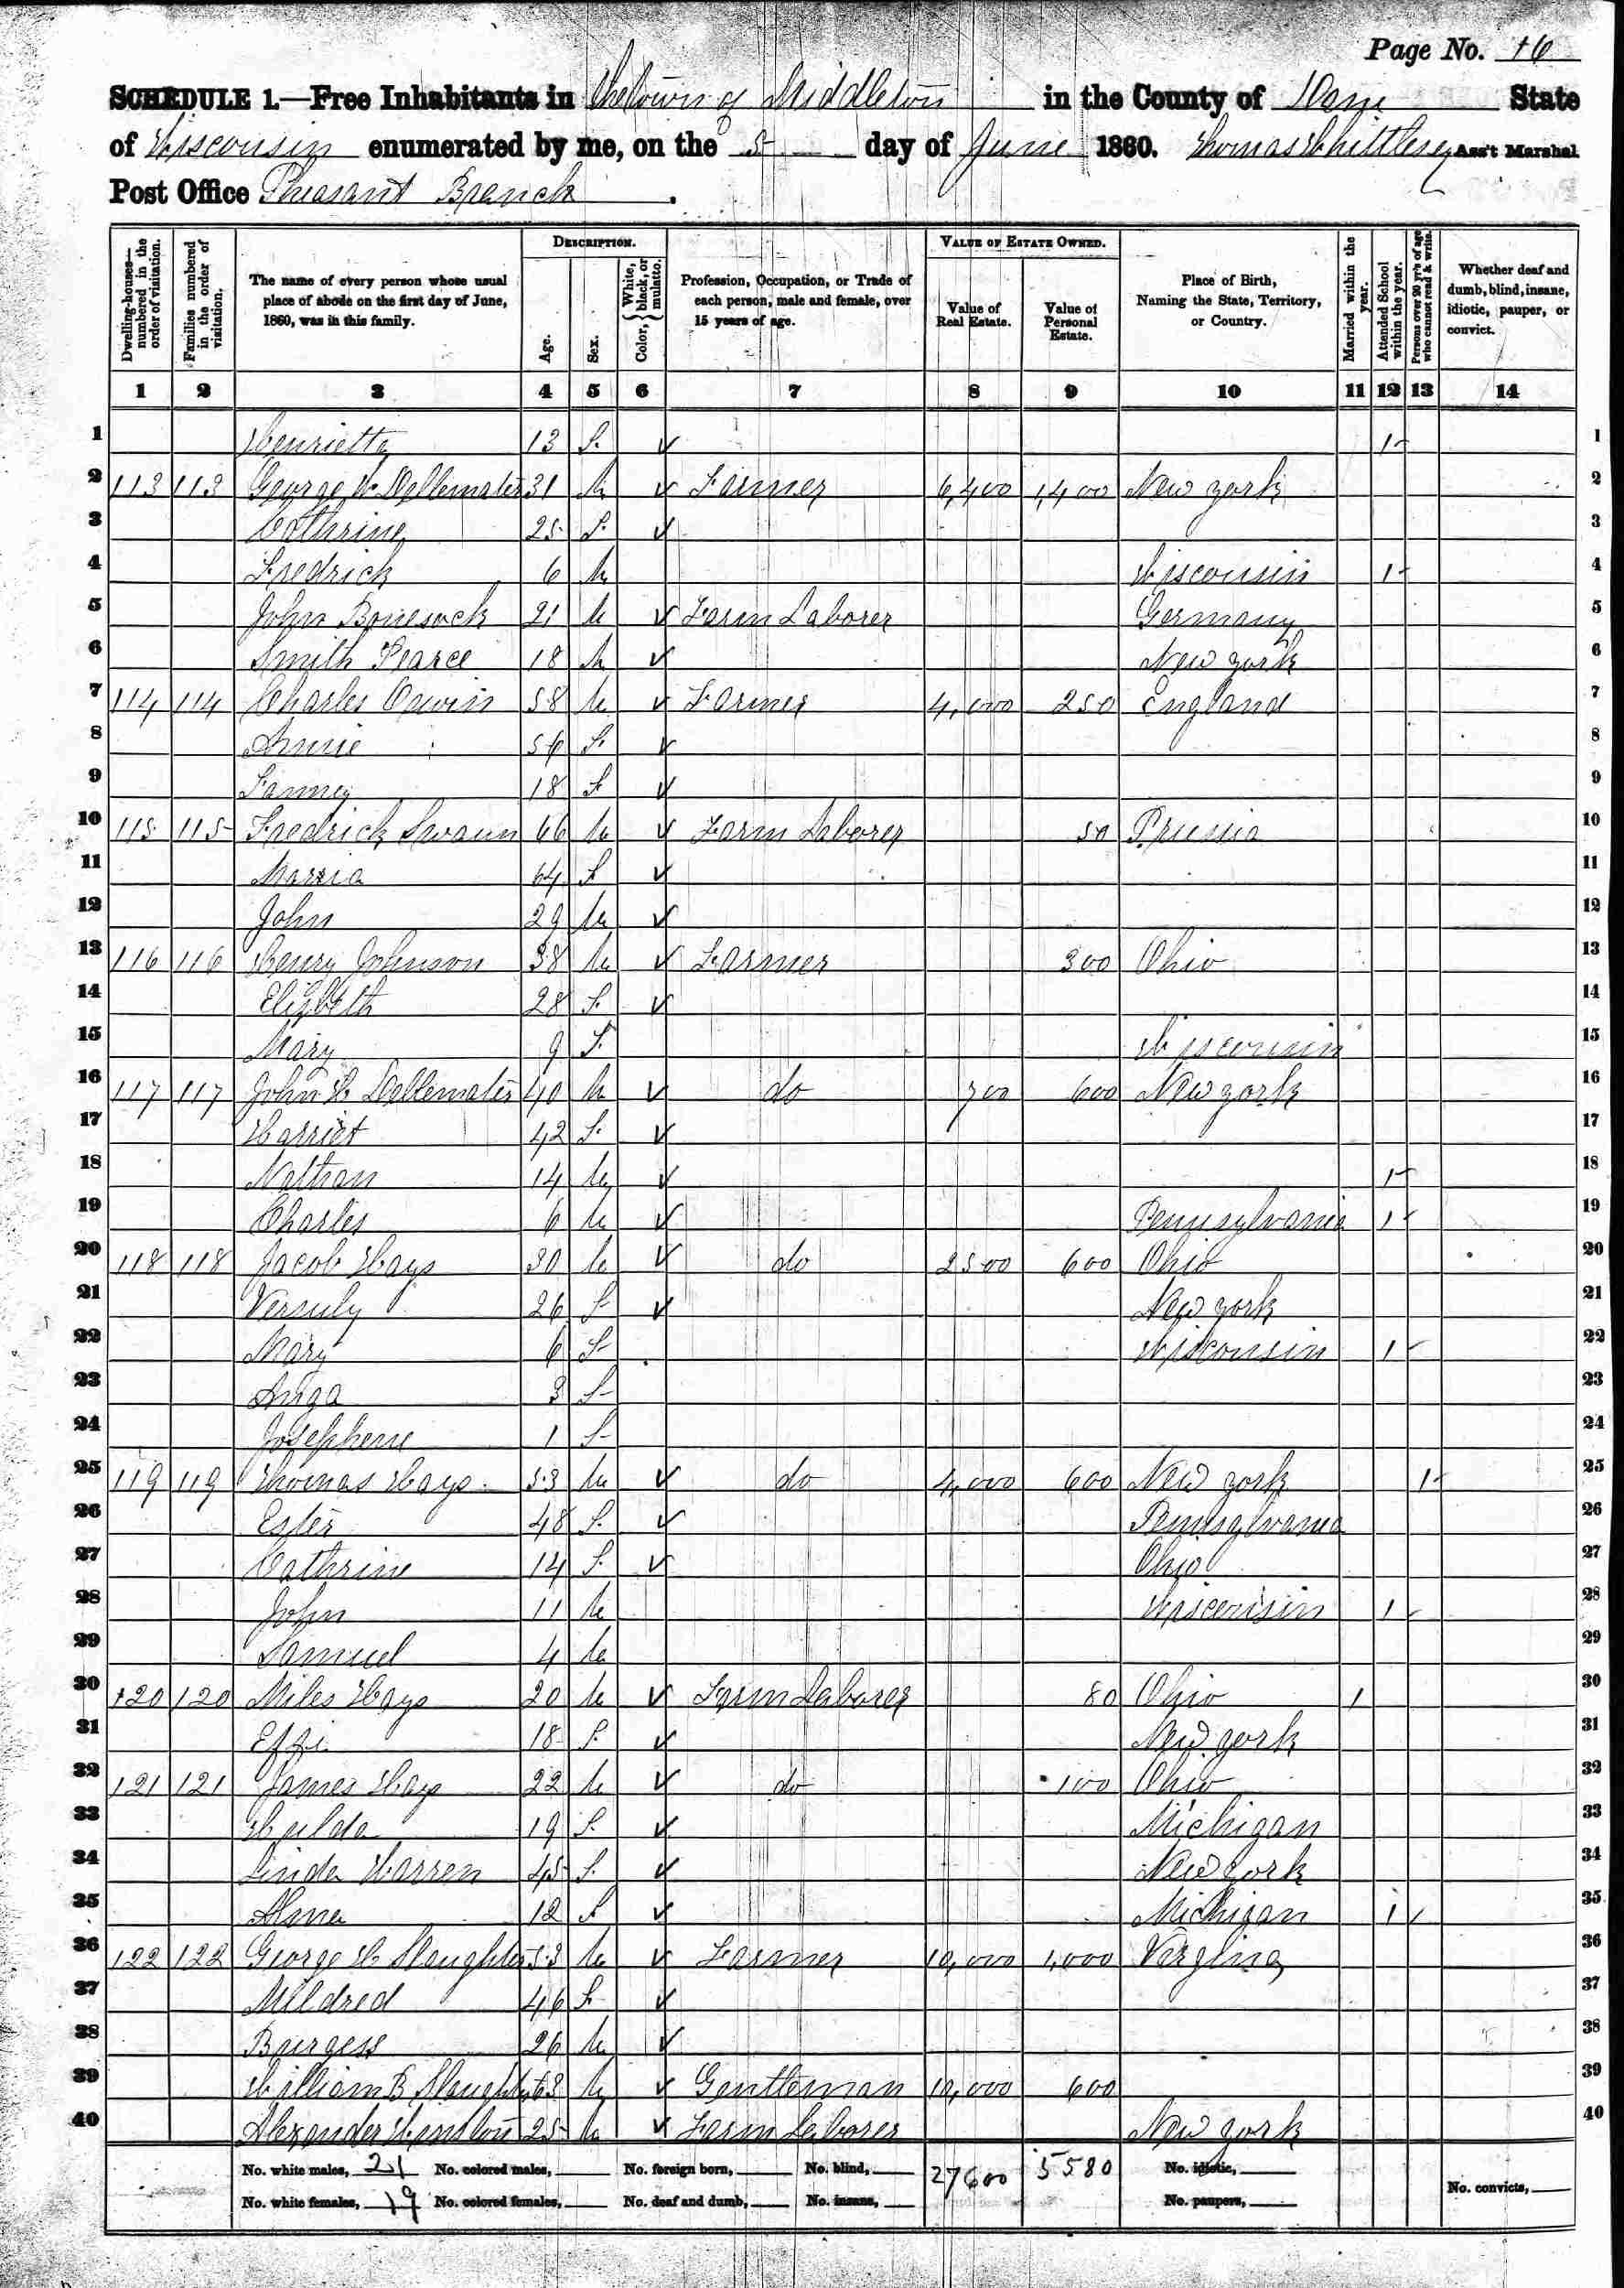 Page No. 16
SCHEDULE 1.—Free Inhabitants in The Town of Middleton in the County of Dane State
of Wisconsin enumerated by me, on the 5 day of June 1860. Thomas Whittlesey Ass't Marshal
Post Office Pheasant Branch.
Dwelling-houses—numbered in the order of visitation. Families numbered in the order of visitation. The name of every person whose usual place of abode on the first day of June, 1860, was in this family. DESCRIPTION. Age. Sex. Color, { White, black, or mulatto. Profession, Occupation, or Trade of each person, male and female, over 15 years of age. VALUE OF ESTATE OWNED. Value of Real Estate. Value of Personal Estate. Place of Birth, Naming the State, Territory, or Country. Married within the year. Attended School within the year. Persons over 20 yr's of age who cannot read & write. Whether deaf and dumb, blind, insane, idiotic, pauper, or convict.
1 2 3 4 5 6 7 8 9 10 11 12 13 14
1 Henrietta 13 F. 1 1
2 113 113 George W. Dellemater 31 M Farmer 6,400 1,400 New York 2
3 Cathrine 25 F. 3
4 Fredrick 6 M Wisconsin 1 4
5 John Bonesack 21 M Farm Laborer Germany 5
6 Smith Pearce 18 M New York 6
7 114 114 Charles 58 M Farmer 4,000 250 England 7
8 Annie 56 F. 8
9 Fanney 18 F 9
10 115 115 Fredrick Swann 66 M Farm Laborer 50 Prussia 10
11 Marria 64 F 11
12 John 29 M 12
13 116 116 Henry Johnson 38 M Farmer 300 Ohio 13
14 Elizbeth 28 F. 14
15 Mary 9 F. Wisconsin 15
16 117 117 John H Dellemater 40 M do 700 600 New York 16
17 Harriet 42 F. 17
18 Nathan 14 M 1 18
19 Charles 6 M Pennsylvania 1 19
20 118 118 Jacob Hays 30 M do 2500 600 Ohio 20
21 26 F New York 21
22 Mary 6 F Wisconsin 1 22
23 3 F 23
24 Josephene 1 F 24
25 119 119 Thomas Hays 53 M do 4,000 600 New York 1 25
26 Ester 48 F. Pennsylvania 26
27 Cathrine 14 F. Ohio 27
28 John 11 M Wisconsin 1 28
29 Samuel 4 M 29
30 120 120 Miles Hays 20 M Farm Laborer 80 Ohio 1 30
31 Effi 18 F. New York 31
32 121 121 James Hays 22 M do 100 Ohio 32
33 Hulda 19 F. Michigan 33
34 Linda Warren 45 F. New York 34
35 Alma 12 F Michigan 1 35
36 122 122 George H Slaughter 53 M Farmer 10,000 1,000 Virginia 36
37 Mildred 46 F 37
38 Burgess 26 M 38
39 William B Slaughter 63 M Gentleman 10,000 600 39
40 Alexander 25 M Farm Laborer New York 40
No. white males, 21 No. colored males, No. foreign born, No. blind, 27600 5580 No. idiotic,
No. white females, 19 No. colored females, No. deaf and dumb, No. insane, No. paupers, No. convicts,